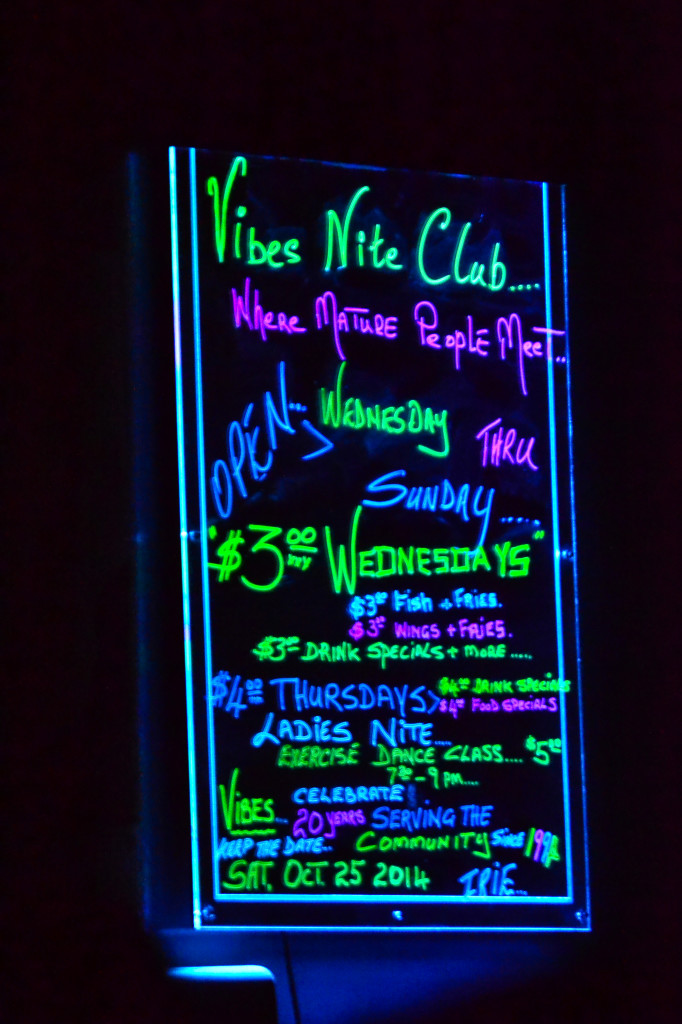 Vibes Nite Club....
Where Mature People Meet..
OPEN... > WEDNESDAY THRU
SUNDAY .....
"$3.00 WEDNESDAYS"
$3.00 Fish + FRIES.
$3.00 WINGS + FRIES.
$3.00 DRINK SPECIALS + MORE .....
$4.00 THURSDAYS > $4.00 DRINK SPECIALS
$4.00 FOOD SPECIALS
LADIES NITE....
EXERCISE DANCE CLASS.... $5.00
7:30 - 9 PM....
VIBES... CELEBRATE
20 YEARS SERVING THE
KEEP THE DATE.. COMMUNITY SINCE
SAT. OCT. 25 2014 IRIE...